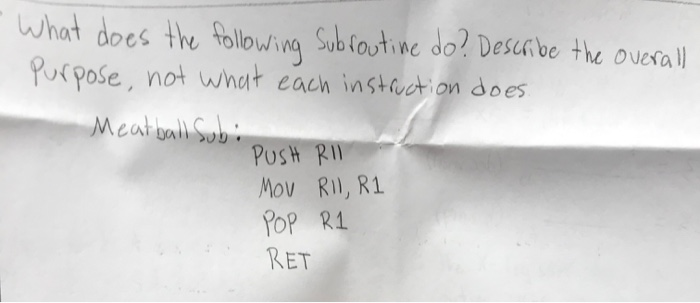 What does the following Subroutine do? Describe the overall
Purpose, not what each instruction does
Meatball Sub:
PUSH R11
MOV R11, R1
POP R1
RET